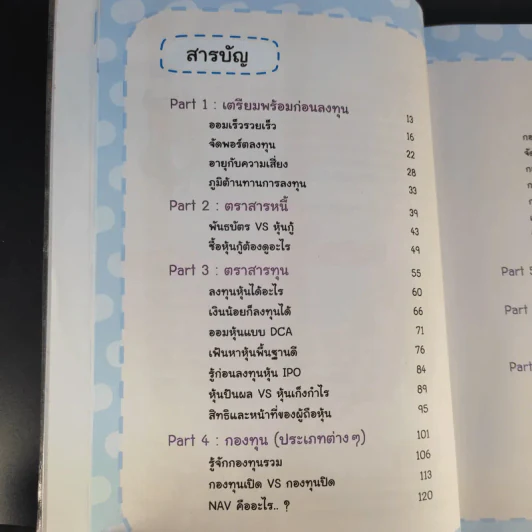 สารบัญ
Part 1 : เตรียมพร้อมก่อนลงทุน 13
ออมเร็วรวยเร็ว 16
จัดพอร์ตลงทุน 22
อายุกับความเสี่ยง 28
ภูมิต้านทานการลงทุน 33
Part 2 : ตราสารหนี้ 39
พันธบัตร VS หุ้นกู้ 43
ซื้อหุ้นกู้ต้องดูอะไร 49
Part 3 : ตราสารทุน 55
ลงทุนหุ้นได้อะไร 60
เงินน้อยก็ลงทุนได้ 66
ออมหุ้นแบบ DCA 71
เฟ้นหาหุ้นพื้นฐานดี 76
รู้ก่อนลงทุนหุ้น IPO 84
หุ้นปันผล VS หุ้นเก็งกำไร 89
สิทธิและหน้าที่ของผู้ถือหุ้น 95
Part 4 : กองทุน (ประเภทต่างๆ) 101
รู้จักกองทุนรวม 106
กองทุนเปิด VS กองทุนปิด 113
NAV คืออะไร.. ? 120
Part
Part
Part